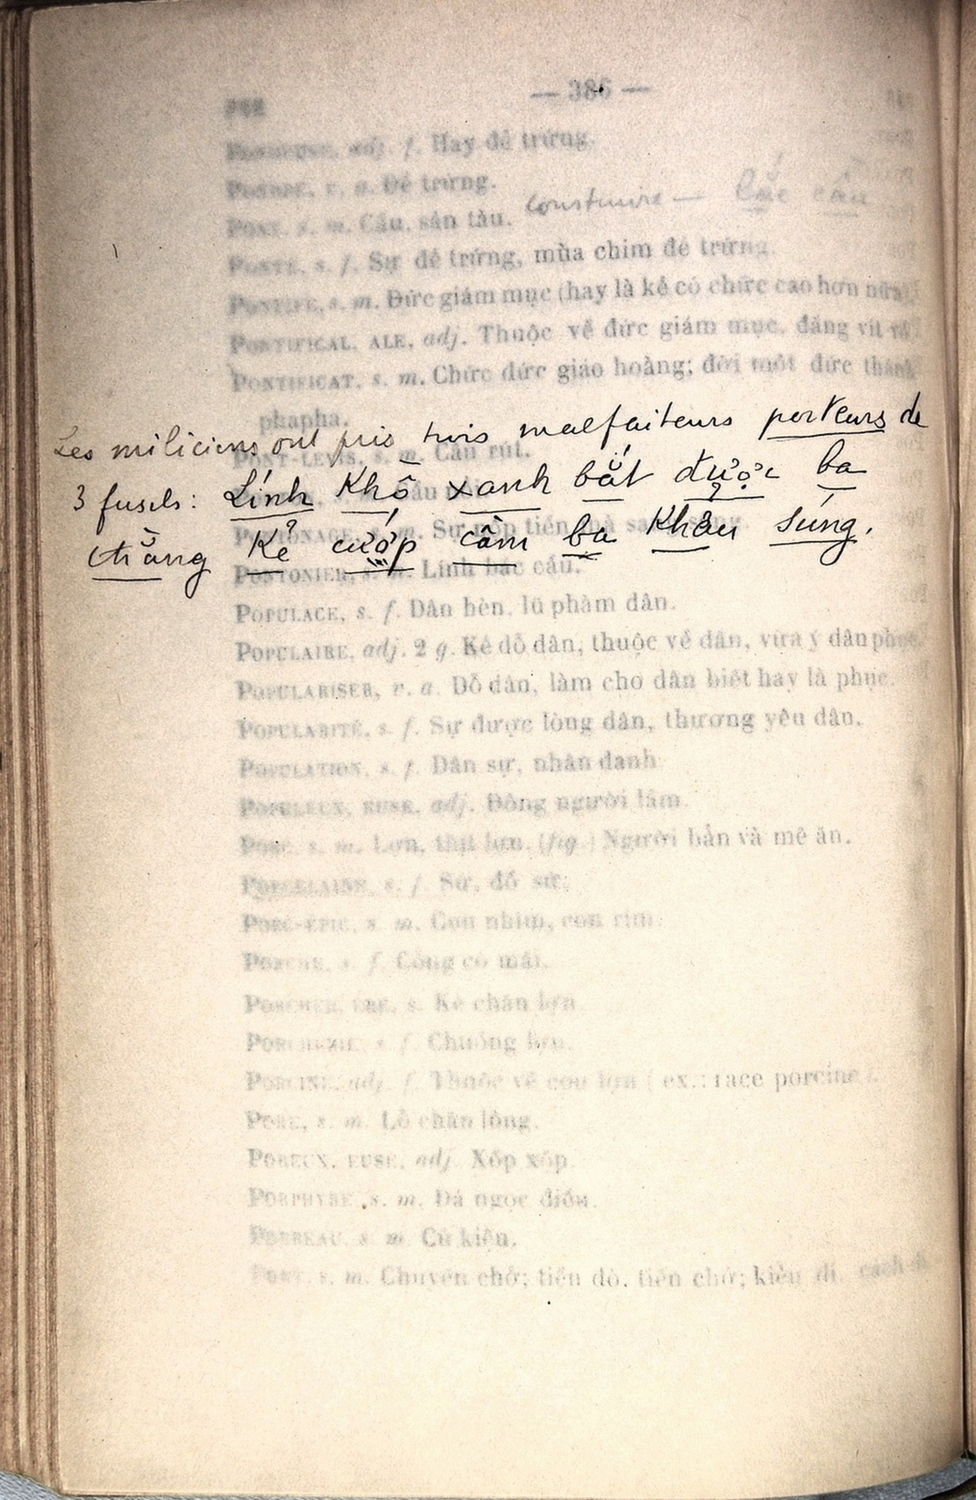 — 386 —
adj. f. Hay đẻ trứng.
Đẻ trứng.
PONT, s. m. Cầu, sàn tàu. Construire — Bắc cầu
PONTE, s. f. Sự đẻ trứng, mùa chim đẻ trứng.
PONTIFE, s. m. Đức giám mục (hay là kẻ có chức cao hơn nữa).
PONTIFICAL, ALE, adj. Thuộc về đức giám mục, đấng vít vồ.
PONTIFICAT, s. m. Chức đức giáo hoàng; đời một đức thánh
phapha.
Les miliciens ont pris trois malfaiteurs porteurs de
PONT-LEVIS, s. m. Cầu rút.
3 fusils: Lính Khố xanh bắt được ba
s. m. Sự nộp tiền
thằng Kẻ cướp cầm ba Khẩu súng.
PONTONIER, s. m. Lính bắc cầu.
POPULACE, s. f. Dân hèn, lũ phàm dân.
POPULAIRE, adj. 2 g. Kẻ dỗ dân, thuộc về dân, vừa ý dân
POPULARISER, v. a. Dỗ dân, làm cho dân biết hay là phục.
POPULARITÉ, s. f. Sự được lòng dân, thương yêu dân.
POPULATION, s. f. Dân sự, nhân danh
POPULEUX, EUSE, adj. Đông người lắm.
PORC, s. m. Lợn, thịt lợn. (fig.) Người bẩn và mê ăn.
PORCELAINE, s. f. Sứ, đồ sứ.
PORC-ÉPIC, s. m. Con nhím, con rím.
PORCHE, s. f. Cổng có mái.
PORCHER, ÈRE, s. Kẻ chăn lợn.
PORCHERIE, s. f. Chuồng lợn.
PORCINE, adj. f. Thuộc về con lợn (ex.: race porcine).
PORE, s. m. Lỗ chân lông.
POREUX, EUSE, adj. Xốp xốp.
PORPHYRE, s. m. Đá ngọc điểm.
PORREAU, s. m. Củ kiệu.
PORT, s. m. Chuyên chở; tiền đò, tiền chở; kiểu đi, cách